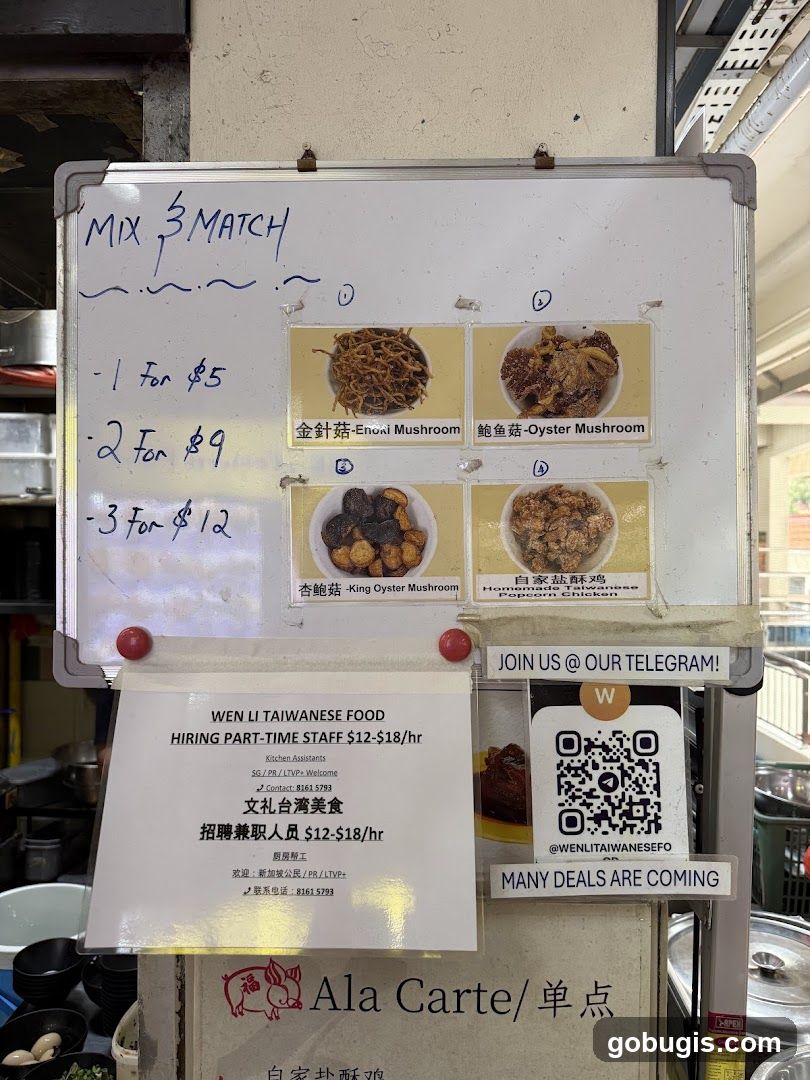 MIX & MATCH
- 1 For $5
- 2 For $9
- 3 For $12
1
2
金針菇-Enoki Mushroom
鲍鱼菇-Oyster Mushroom
3
4
杏鲍菇 -King Oyster Mushroom
自家盐酥鸡
Homemade Taiwanese
Popcorn Chicken
JOIN US @ OUR TELEGRAM!
WEN LI TAIWANESE FOOD
HIRING PART-TIME STAFF $12-$18/hr
Kitchen Assistants
SG / PR / LTVP+ Welcome
Contact: 8161 5793
文礼台湾美食
招聘兼职人员 $12-$18/hr
厨房帮工
欢迎：新加坡公民 / PR / LTVP+
联系电话：8161 5793
W
@WENLITAIWANESEFO
MANY DEALS ARE COMING
福
Ala Carte/单点
自家盐酥鸡
gobugis.com